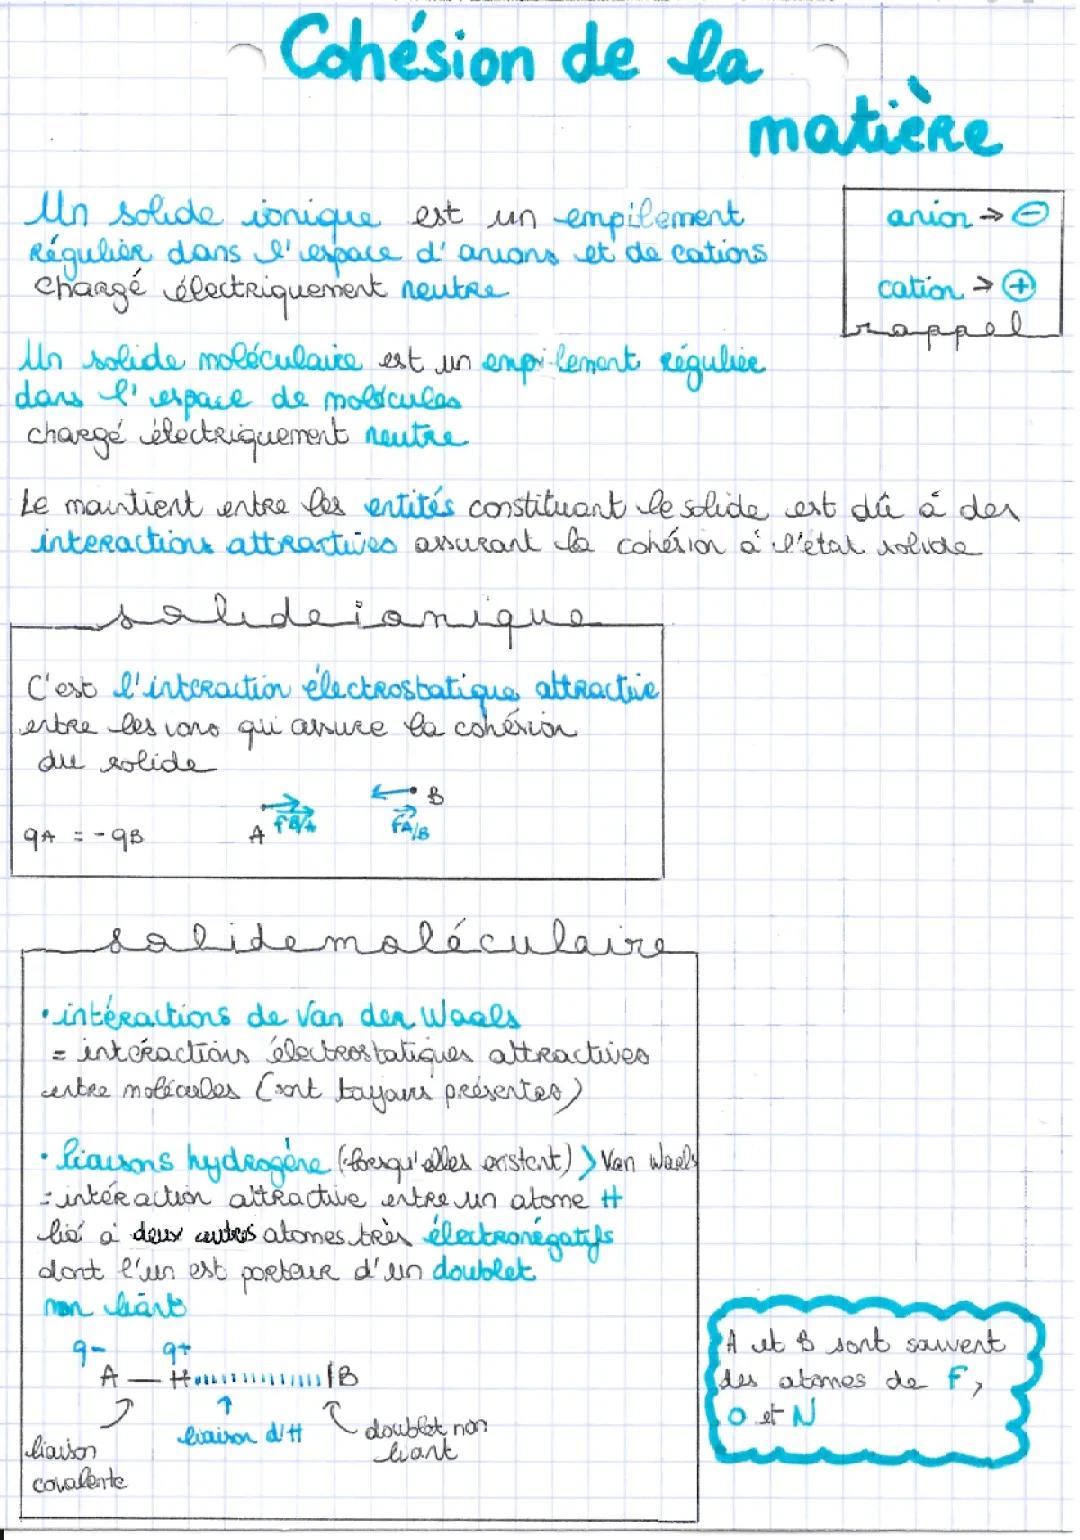 Cohésion de la
matière
Un solide ionique est un empilement
Régulier dans l'espace d'anions et de cations
chargé électriquement neutre
anion → ⊖
cation → ⊕
rappel
Un solide moléculaire est un empilement régulier
dans l'espace de molécules
chargé électriquement neutre
Le maintient entre les entités constituant le solide est dû à des
interactions attractives assurant la cohésion à l'état solide
solide ionique
C'est l'interaction électrostatique attractive
entre les ions qui assure la cohésion
du solide
B
qA = -qB
A
fB/A
fA/B
solide moléculaire
• intéractions de Van der Waals
= intéractions électrostatiques attractives
entre molécules (sont toujours présentes)
• liaisons hydrogène (lorsqu'elles existent) > Van Waals
= intéraction attractive entre un atome H
lié à deux autres atomes très électronégatifs
dont l'un est porteur d'un doublet
non liant
q- q+
A — H ıııııııııııı |B
liaison d'H
doublet non
liant
liaison
covalente
A et B sont souvent
des atomes de F,
O et N